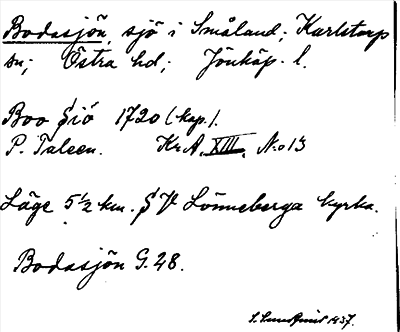 Bodasjön, sjö i Småland; Karlstorp
sn; Östra hd; Jönköp. l.
Boo Siö 1720 (kop.).
P. Duleen. Kr.A. XIII. No 13
Läge 5 1/2 km. SV Lönneberga kyrka.
Bodasjön G. 28.
1937.